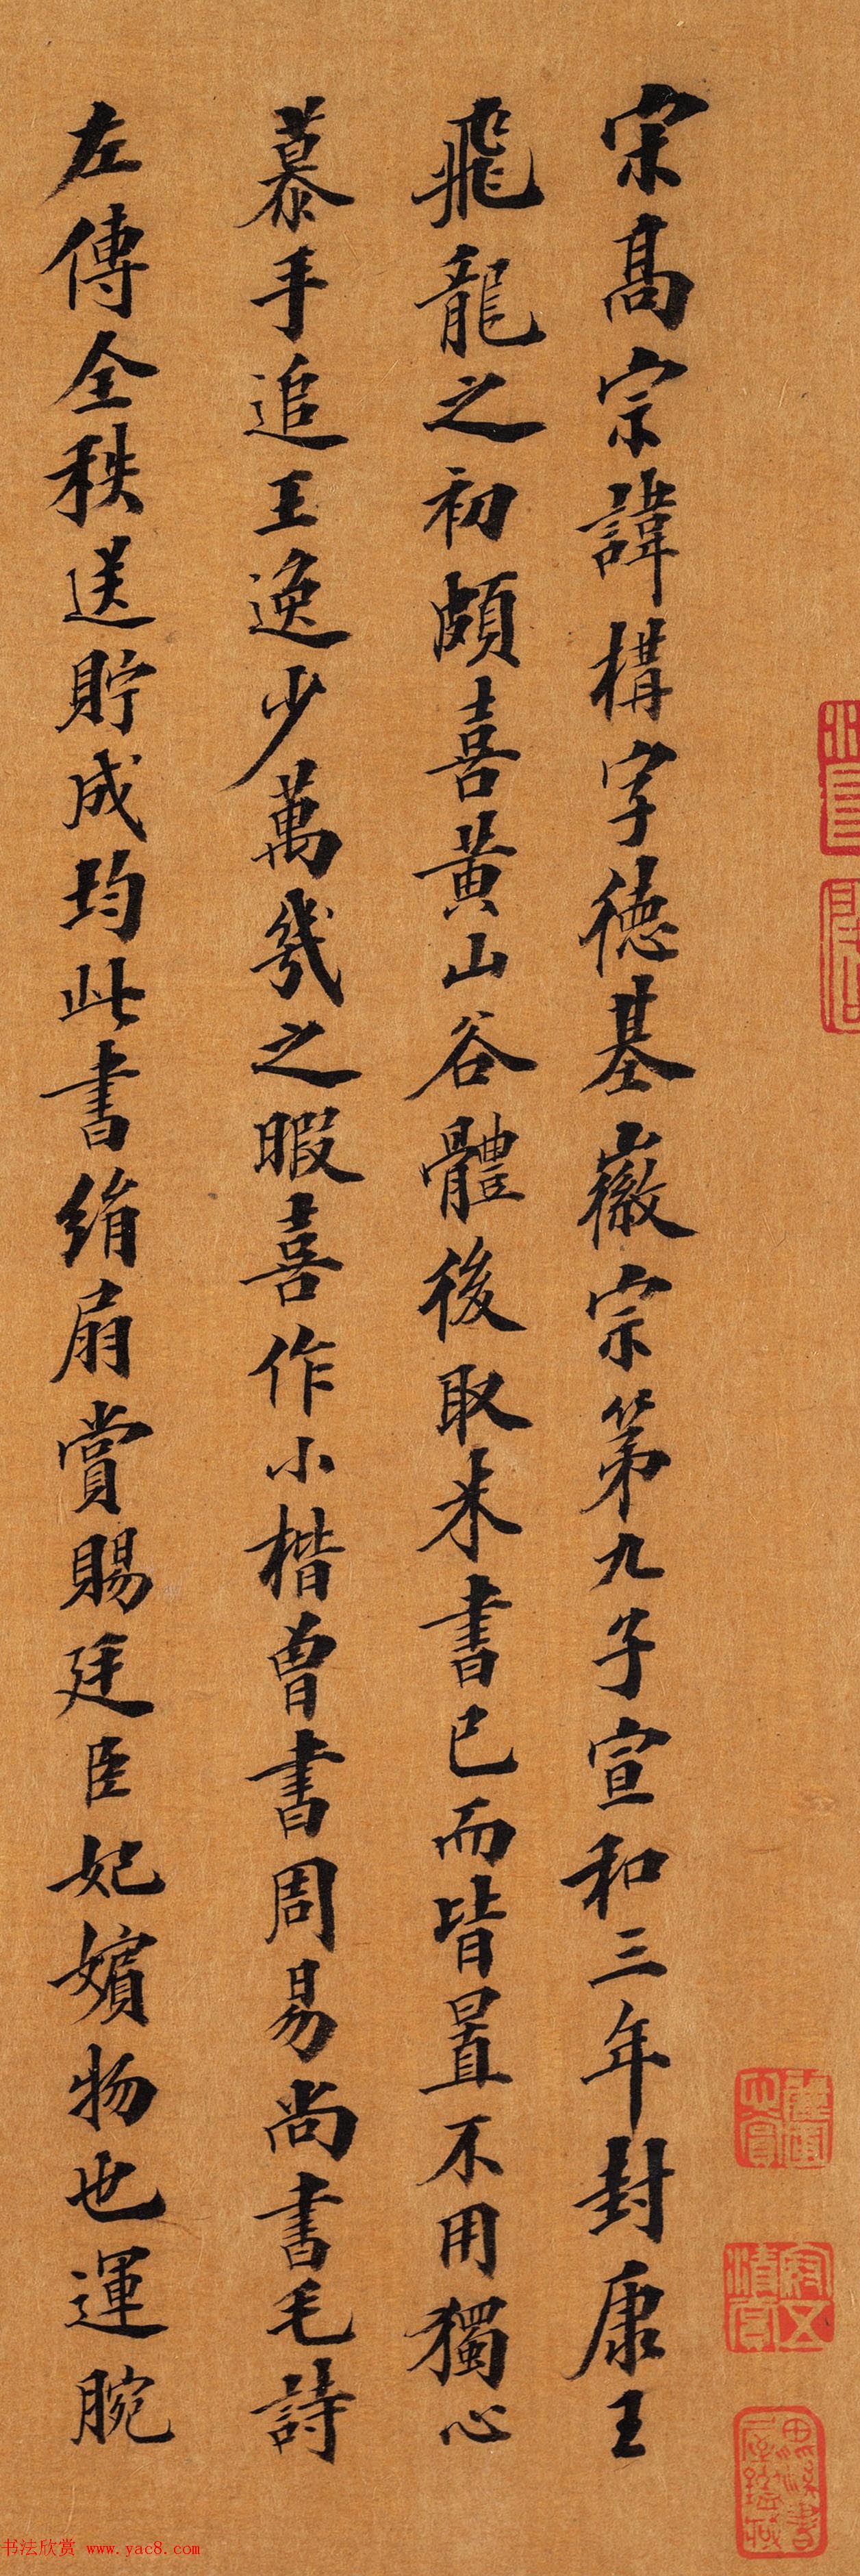 宋髙宗諱構字徳基徽宗第九子宣和三年封康王
飛龍之初頗喜黃山谷體後取米書已而皆置不用獨心
慕手追王逸少萬幾之暇喜作小楷曾書周易尚書毛詩
左傳全秩送貯成均此書絹扇賞賜廷臣妃嬪物也運腕
书法欣赏 www.yac8.com